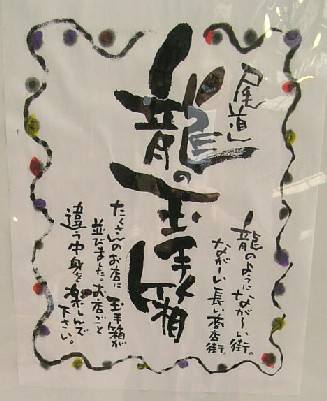 尾道
龍の玉手箱
龍のようになが〜い街。
なが〜い長い商店街。
たくさんのお店に玉手箱が
並びましたお店ごと
違う中身を楽しんで
下さい。